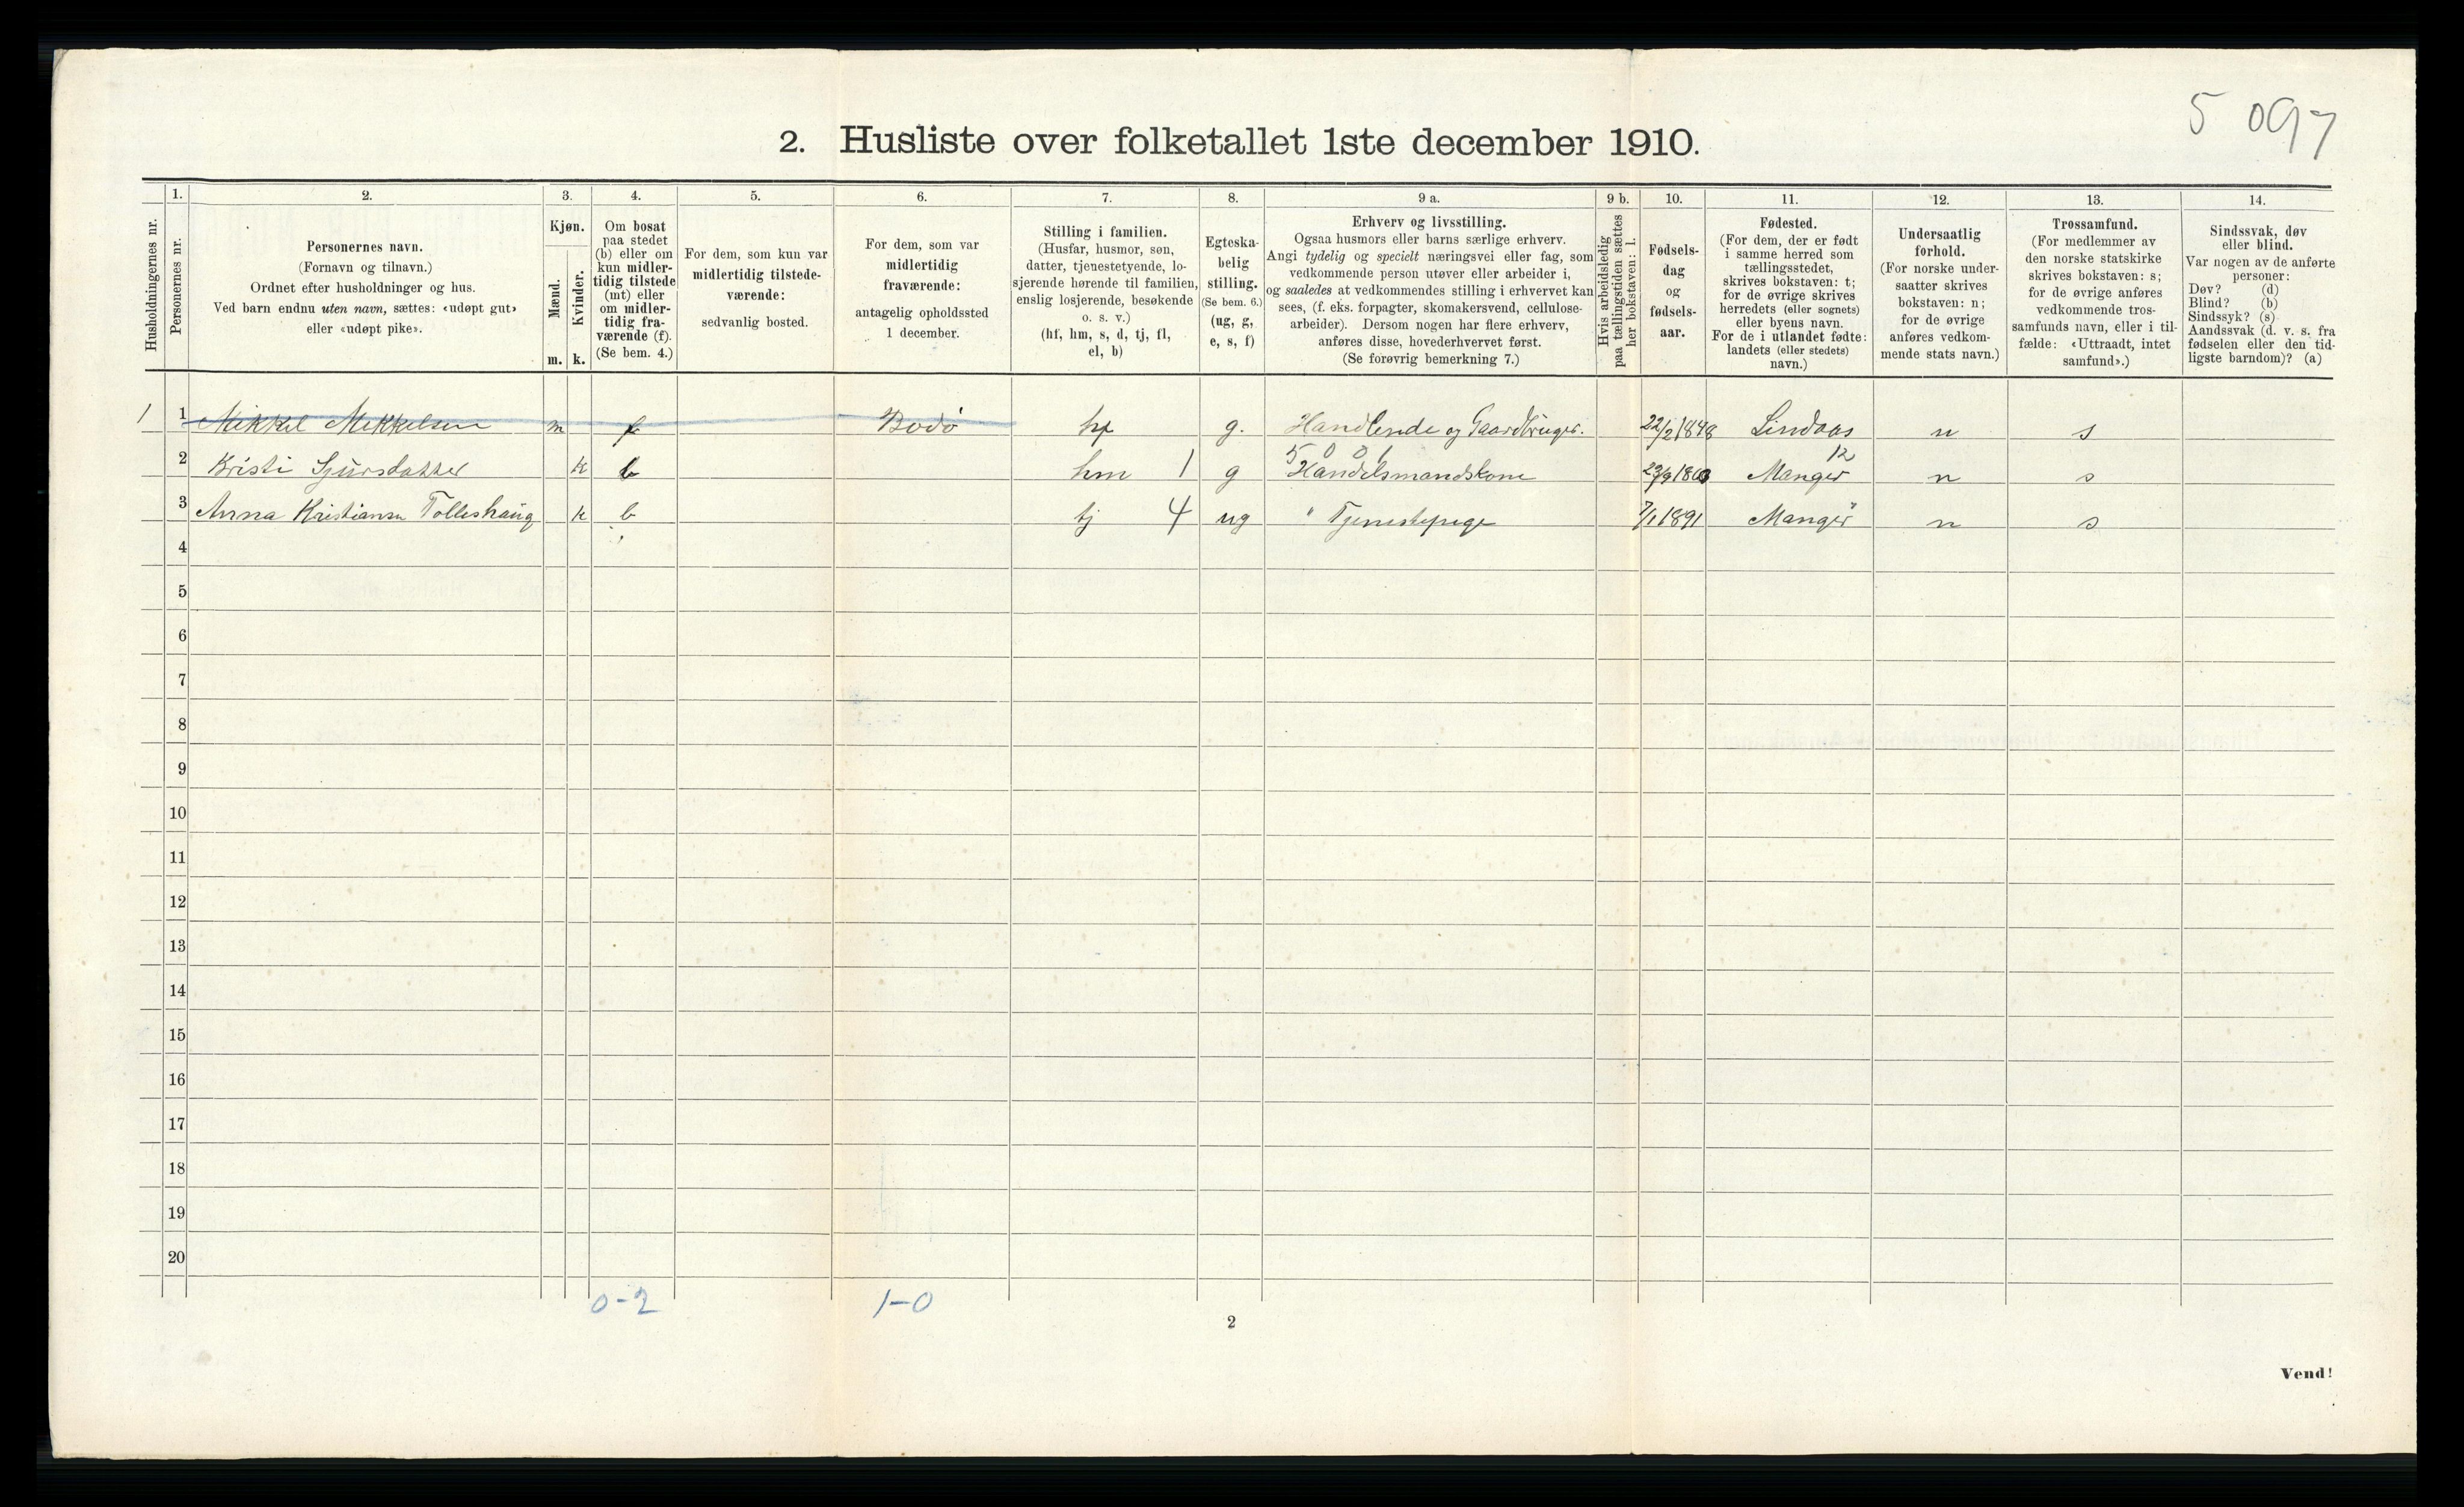 5 097
2. Husliste over folketallet 1ste december 1910.
Husholdningernes nr.
1.
Personernes nr.
2.
Personernes navn.
(Fornavn og tilnavn.)
Ordnet efter husholdninger og hus.
Ved barn endnu uten navn, sættes: «udøpt gut»
eller «udøpt pike».
3.
Kjøn.
Mænd.
Kvinder.
m. k.
4.
Om bosat
paa stedet
(b) eller om
kun midler-
tidig tilstede
(mt) eller
om midler-
tidig fra-
værende (f).
(Se bem. 4.)
5.
For dem, som kun var
midlertidig tilstede-
værende:
sedvanlig bosted.
6.
For dem, som var
midlertidig
fraværende:
antagelig opholdssted
1 december.
7.
Stilling i familien.
(Husfar, husmor, søn,
datter, tjenestetyende, lo-
sjerende hørende til familien,
enslig losjerende, besøkende
o. s. v.)
(hf, hm, s, d, tj, fl,
el, b)
8.
Egteska-
belig
stilling.
(Se bem. 6.)
(ug, g,
e, s, f)
9 a.
Erhverv og livsstilling.
Ogsaa husmors eller barns særlige erhverv.
Angi tydelig og specielt næringsvei eller fag, som
vedkommende person utøver eller arbeider i,
og saaledes at vedkommendes stilling i erhvervet kan
sees, (f. eks. forpagter, skomakersvend, cellulose-
arbeider). Dersom nogen har flere erhverv,
anføres disse, hovederhvervet først.
(Se forøvrig bemerkning 7.)
9 b.
Hvis arbeidsledig
paa tællingstiden sættes
her bokstaven: l.
10.
Fødsels-
dag
og
fødsels-
aar.
11.
Fødested.
(For dem, der er født
i samme herred som
tællingsstedet,
skrives bokstaven: t;
for de øvrige skrives
herredets (eller sognets)
eller byens navn.
For de i utlandet fødte:
landets (eller stedets)
navn.)
12.
Undersaatlig
forhold.
(For norske under-
saatter skrives
bokstaven: n;
for de øvrige
anføres vedkom-
mende stats navn.)
13.
Trossamfund.
(For medlemmer av
den norske statskirke
skrives bokstaven: s;
for de øvrige anføres
vedkommende tros-
samfunds navn, eller i til-
fælde: «Uttraadt, intet
samfund».)
14.
Sindssvak, døv
eller blind.
Var nogen av de anførte
personer:
Døv? (d)
Blind? (b)
Sindssyk? (s)
Aandssvak (d. v. s. fra
fødselen eller den tid-
ligste barndom)? (a)
1 1 Mikkel Mikkelsen m f Bodø hf g. Handlende og Gaardbruger. 22/2 1848 Lindaas n s
5 0 0 1 12
2 Kristi Sjursdatter k b hm 1 g Handelsmandskone 23/9 1860 Manger n s
3 Anna Kristiansn Tolleshaug k b tj 4 ug " Tjenestepige 7/1 1891 Manger " n s
4
5
6
7
8
9
10
11
12
13
14
15
16
17
18
19
20
0-2 1-0
2
Vend!